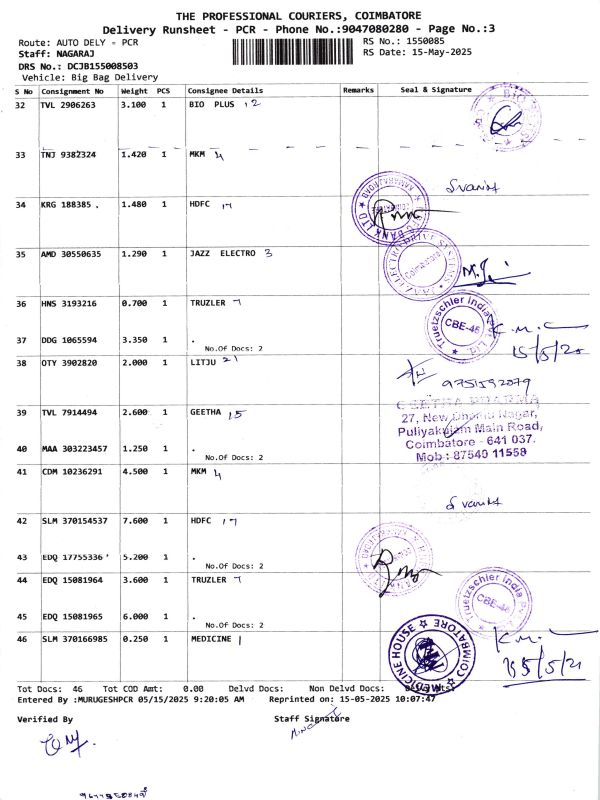 THE PROFESSIONAL COURIERS, COIMBATORE
Delivery Runsheet - PCR - Phone No.:9047080280 - Page No.:3
Route: AUTO DELY - PCR
RS No.: 1550085
Staff: NAGARAJ
RS Date: 15-May-2025
DRS No.: DCJB155008503
Vehicle: Big Bag Delivery
S No Consignment No Weight PCS Consignee Details Remarks Seal & Signature
32 TVL 2906263 3.100 1 BIO PLUS 12
33 TNJ 9382324 1.420 1 MKM 4
34 KRG 188385 . 1.480 1 HDFC 17
35 AMD 30550635 1.290 1 JAZZ ELECTRO 3
36 HNS 3193216 0.700 1 TRUZLER 7
Truetzschler India
CBE-46
37 DDG 1065594 3.350 1 .
No.Of Docs: 2
15/5/20
38 OTY 3902820 2.000 1 LITJU 21
9751592079
39 TVL 7914494 2.600 1 GEETHA 15
GEETHA PHARMA
27, New Nagar,
Puliyakulam Main Road,
Coimbatore - 641 037.
Mob : 87540 11558
40 MAA 303223457 1.250 1 .
No.Of Docs: 2
41 CDM 10236291 4.500 1 MKM 4
42 SLM 370154537 7.600 1 HDFC 17
43 EDQ 17755336 5.200 1 .
No.Of Docs: 2
44 EDQ 15081964 3.600 1 TRUZLER 7
Truetzschler India
CBE-46
45 EDQ 15081965 6.000 1 .
No.Of Docs: 2
46 SLM 370166985 0.250 1 MEDICINE 1
MEDICINE HOUSE COIMBATORE
Tot Docs: 46 Tot COD Amt: 0.00 Delvd Docs: Non Delvd Docs:
Entered By :MURUGESHPCR 05/15/2025 9:20:05 AM Reprinted on: 15-05-2025 10:07:47
Verified By
Staff Signature